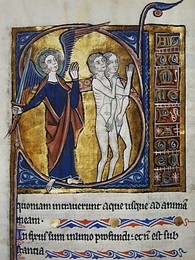 quoniam intraverunt aque usque ad animam
meam.
Infixus sum in limo profundi: et nō est sub
stantia